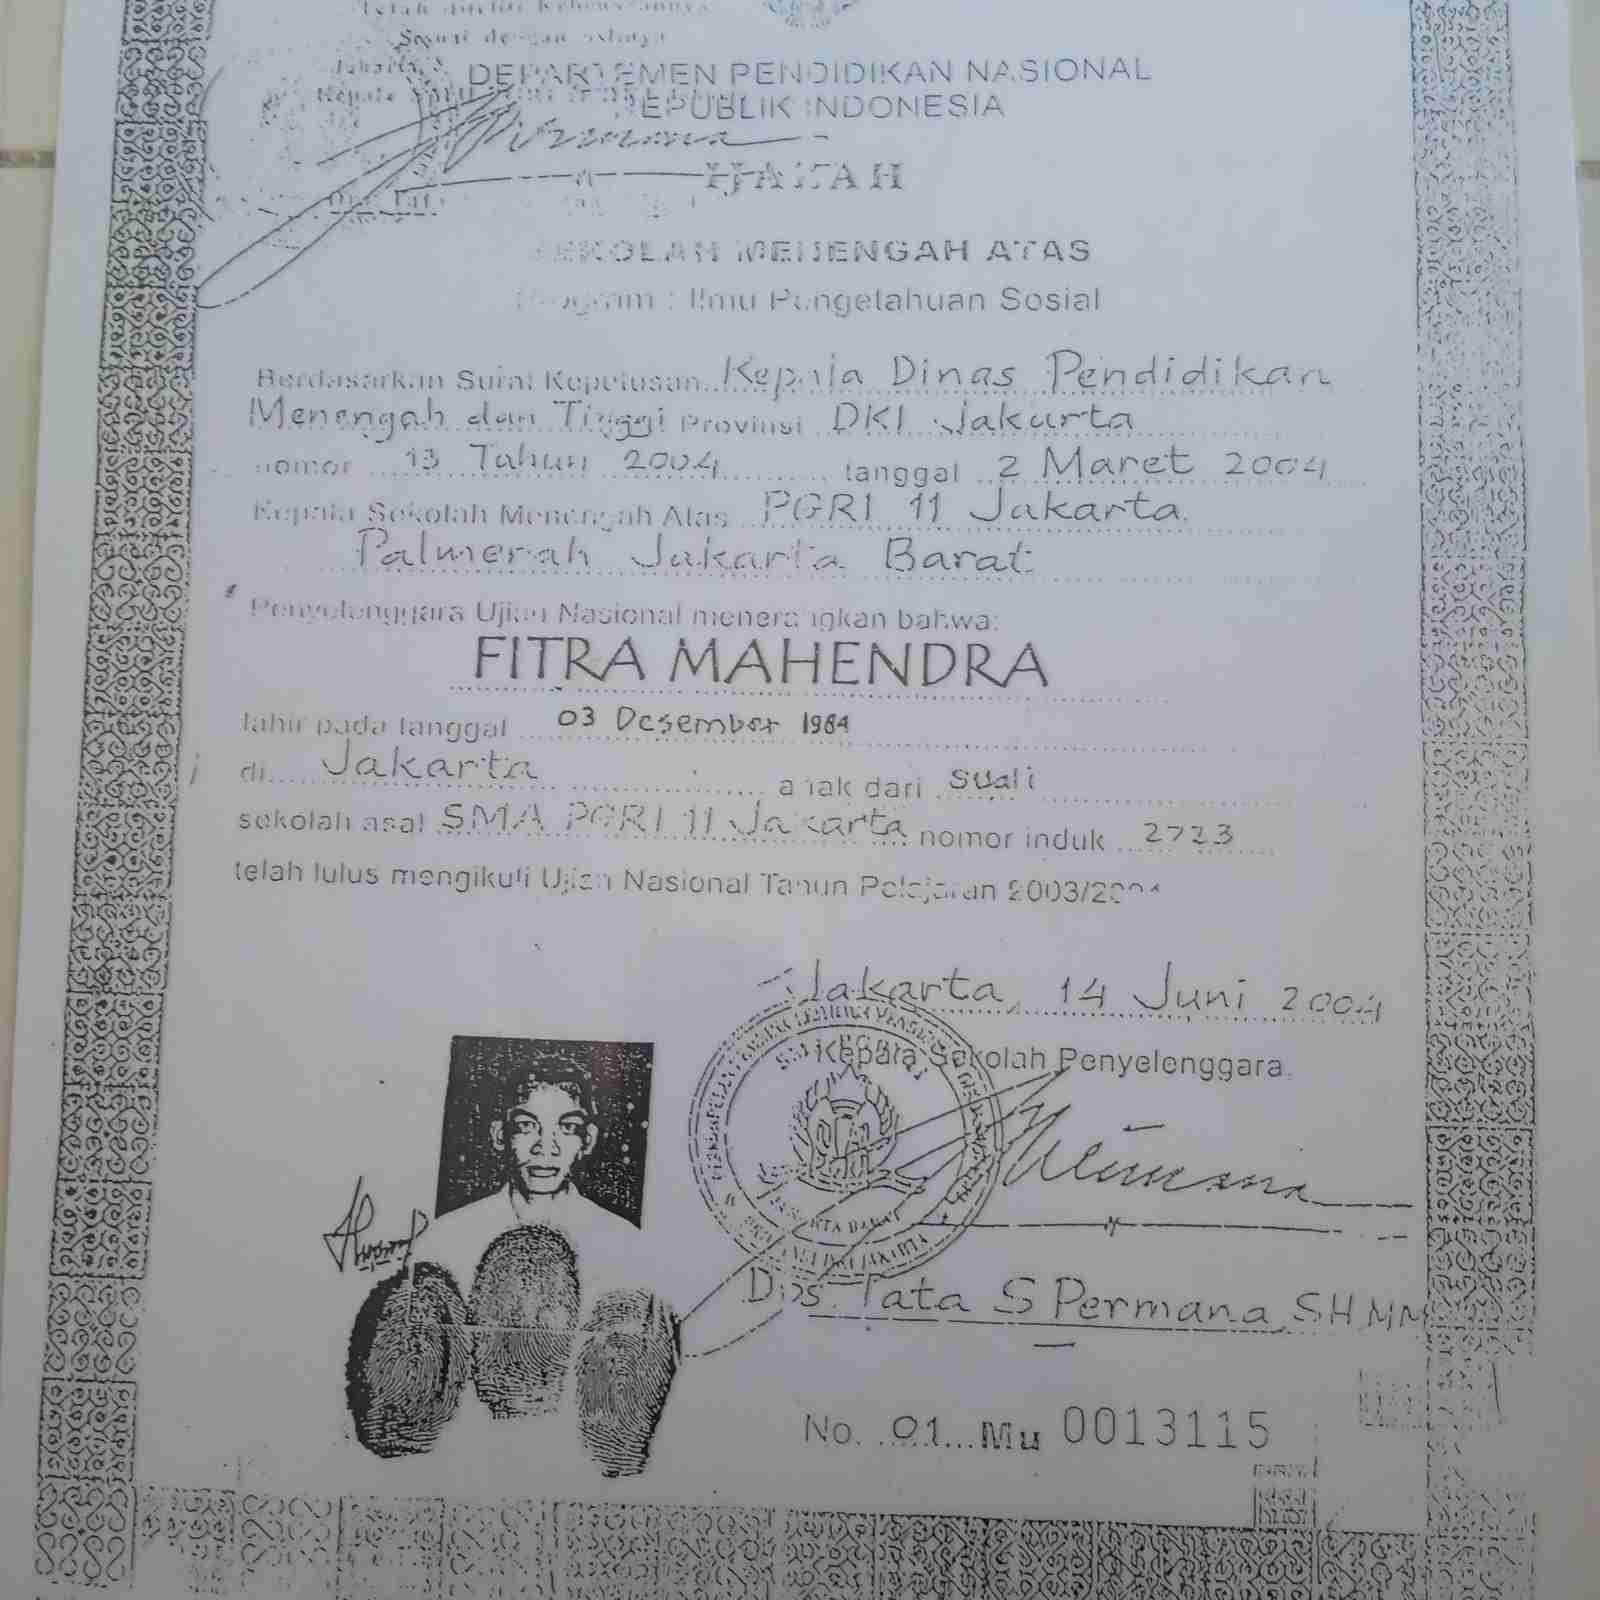 Telah diteliti kebenarannya
Sesuai dengan aslinya
Jakarta
Kepala
DEPARTEMEN PENDIDIKAN NASIONAL
REPUBLIK INDONESIA
IJAZAH
SEKOLAH MENENGAH ATAS
Program : Ilmu Pengetahuan Sosial
Berdasarkan Surat Keputusan Kepala Dinas Pendidikan
Menengah dan Tinggi Provinsi DKI Jakarta
nomor 13 Tahun 2004 tanggal 2 Maret 2004
Kepala Sekolah Menengah Atas PGRI 11 Jakarta
Palmerah Jakarta Barat
Penyelenggara Ujian Nasional menerangkan bahwa:
FITRA MAHENDRA
lahir pada tanggal 03 Desember 1984
di Jakarta anak dari Suali
sekolah asal SMA PGRI 11 Jakarta nomor induk 2723
telah lulus mengikuti Ujian Nasional Tahun Pelajaran 2003/2004
Jakarta, 14 Juni 2004
Kepala Sekolah Penyelenggara,
JAKARTA BARAT
Drs. Tata S Permana, SH, MM
No. 01 Mu 0013115